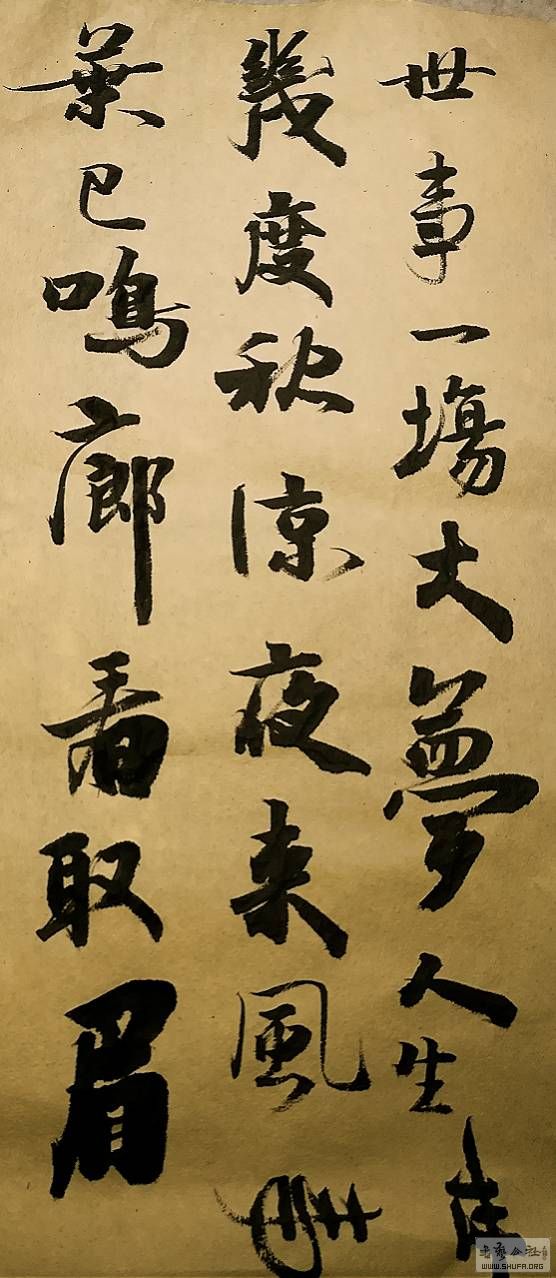 世事一場大夢人生
幾度秋涼夜来風
葉已鳴廊看取眉
書藝公社
WWW.SHUFA.ORG